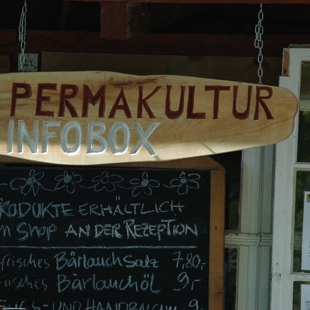 PERMAKULTUR
INFOBOX
RODUKTE ERHÄLTLICH
m Shop AN DER REZEPTION
frisches Bärlauch Salz 7,80,-
frisches Bärlauchöl 9,-
UND HANDBALSAM 9